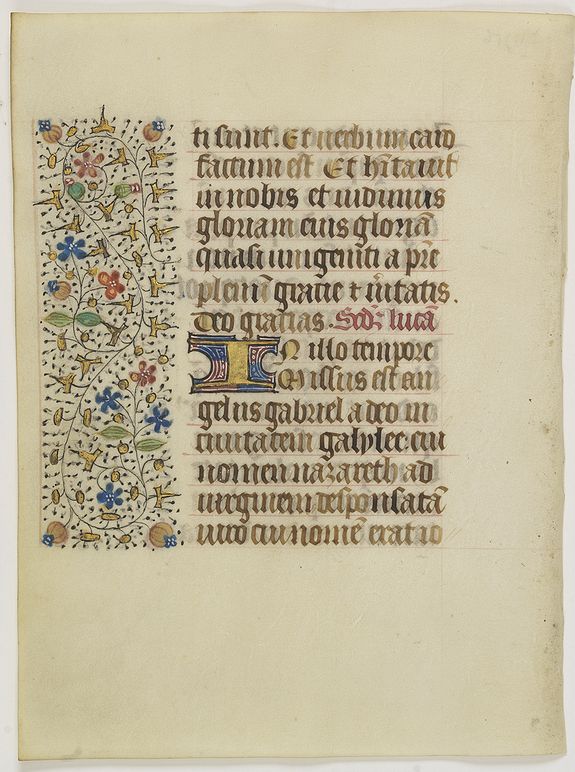 ti sunt. Et verbum caro
factum est Et hītauit
in nobis et uidimus
gloriam eius gloriā
quasi unigeniti a pr̄e
plenū gracie ⁊ ūitatis.
Deo gracias. Scd'z lucā
IN illo tempore
Missus est an
gelus gabriel a deo in
ciuitatem galylee cui
nomen nazareth ad
uirginem desponsatā
uiro cui nomē erat io